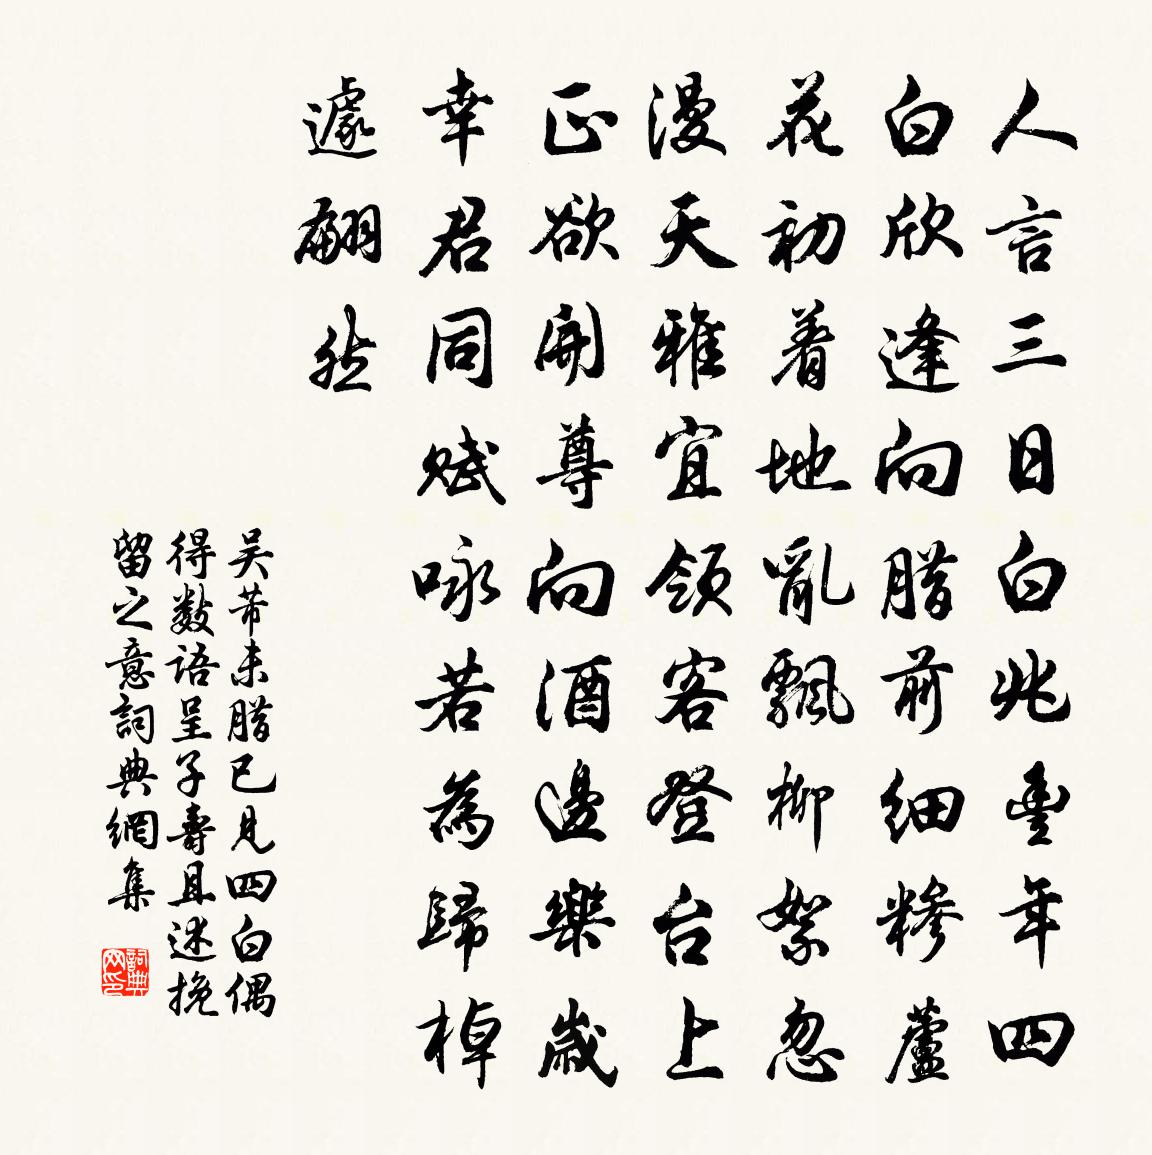 人言三日白兆豐年四
白欣逢向腊前細糝蘆
花初着地亂飄柳絮忽
漫天雅宜領客登台上
正欲開尊向酒邊樂歲
幸君同賦咏若為歸棹
遽翩然
吴芾未腊已見四白偶
得數語呈子壽且述挽
留之意詞典網集
詞典
网印